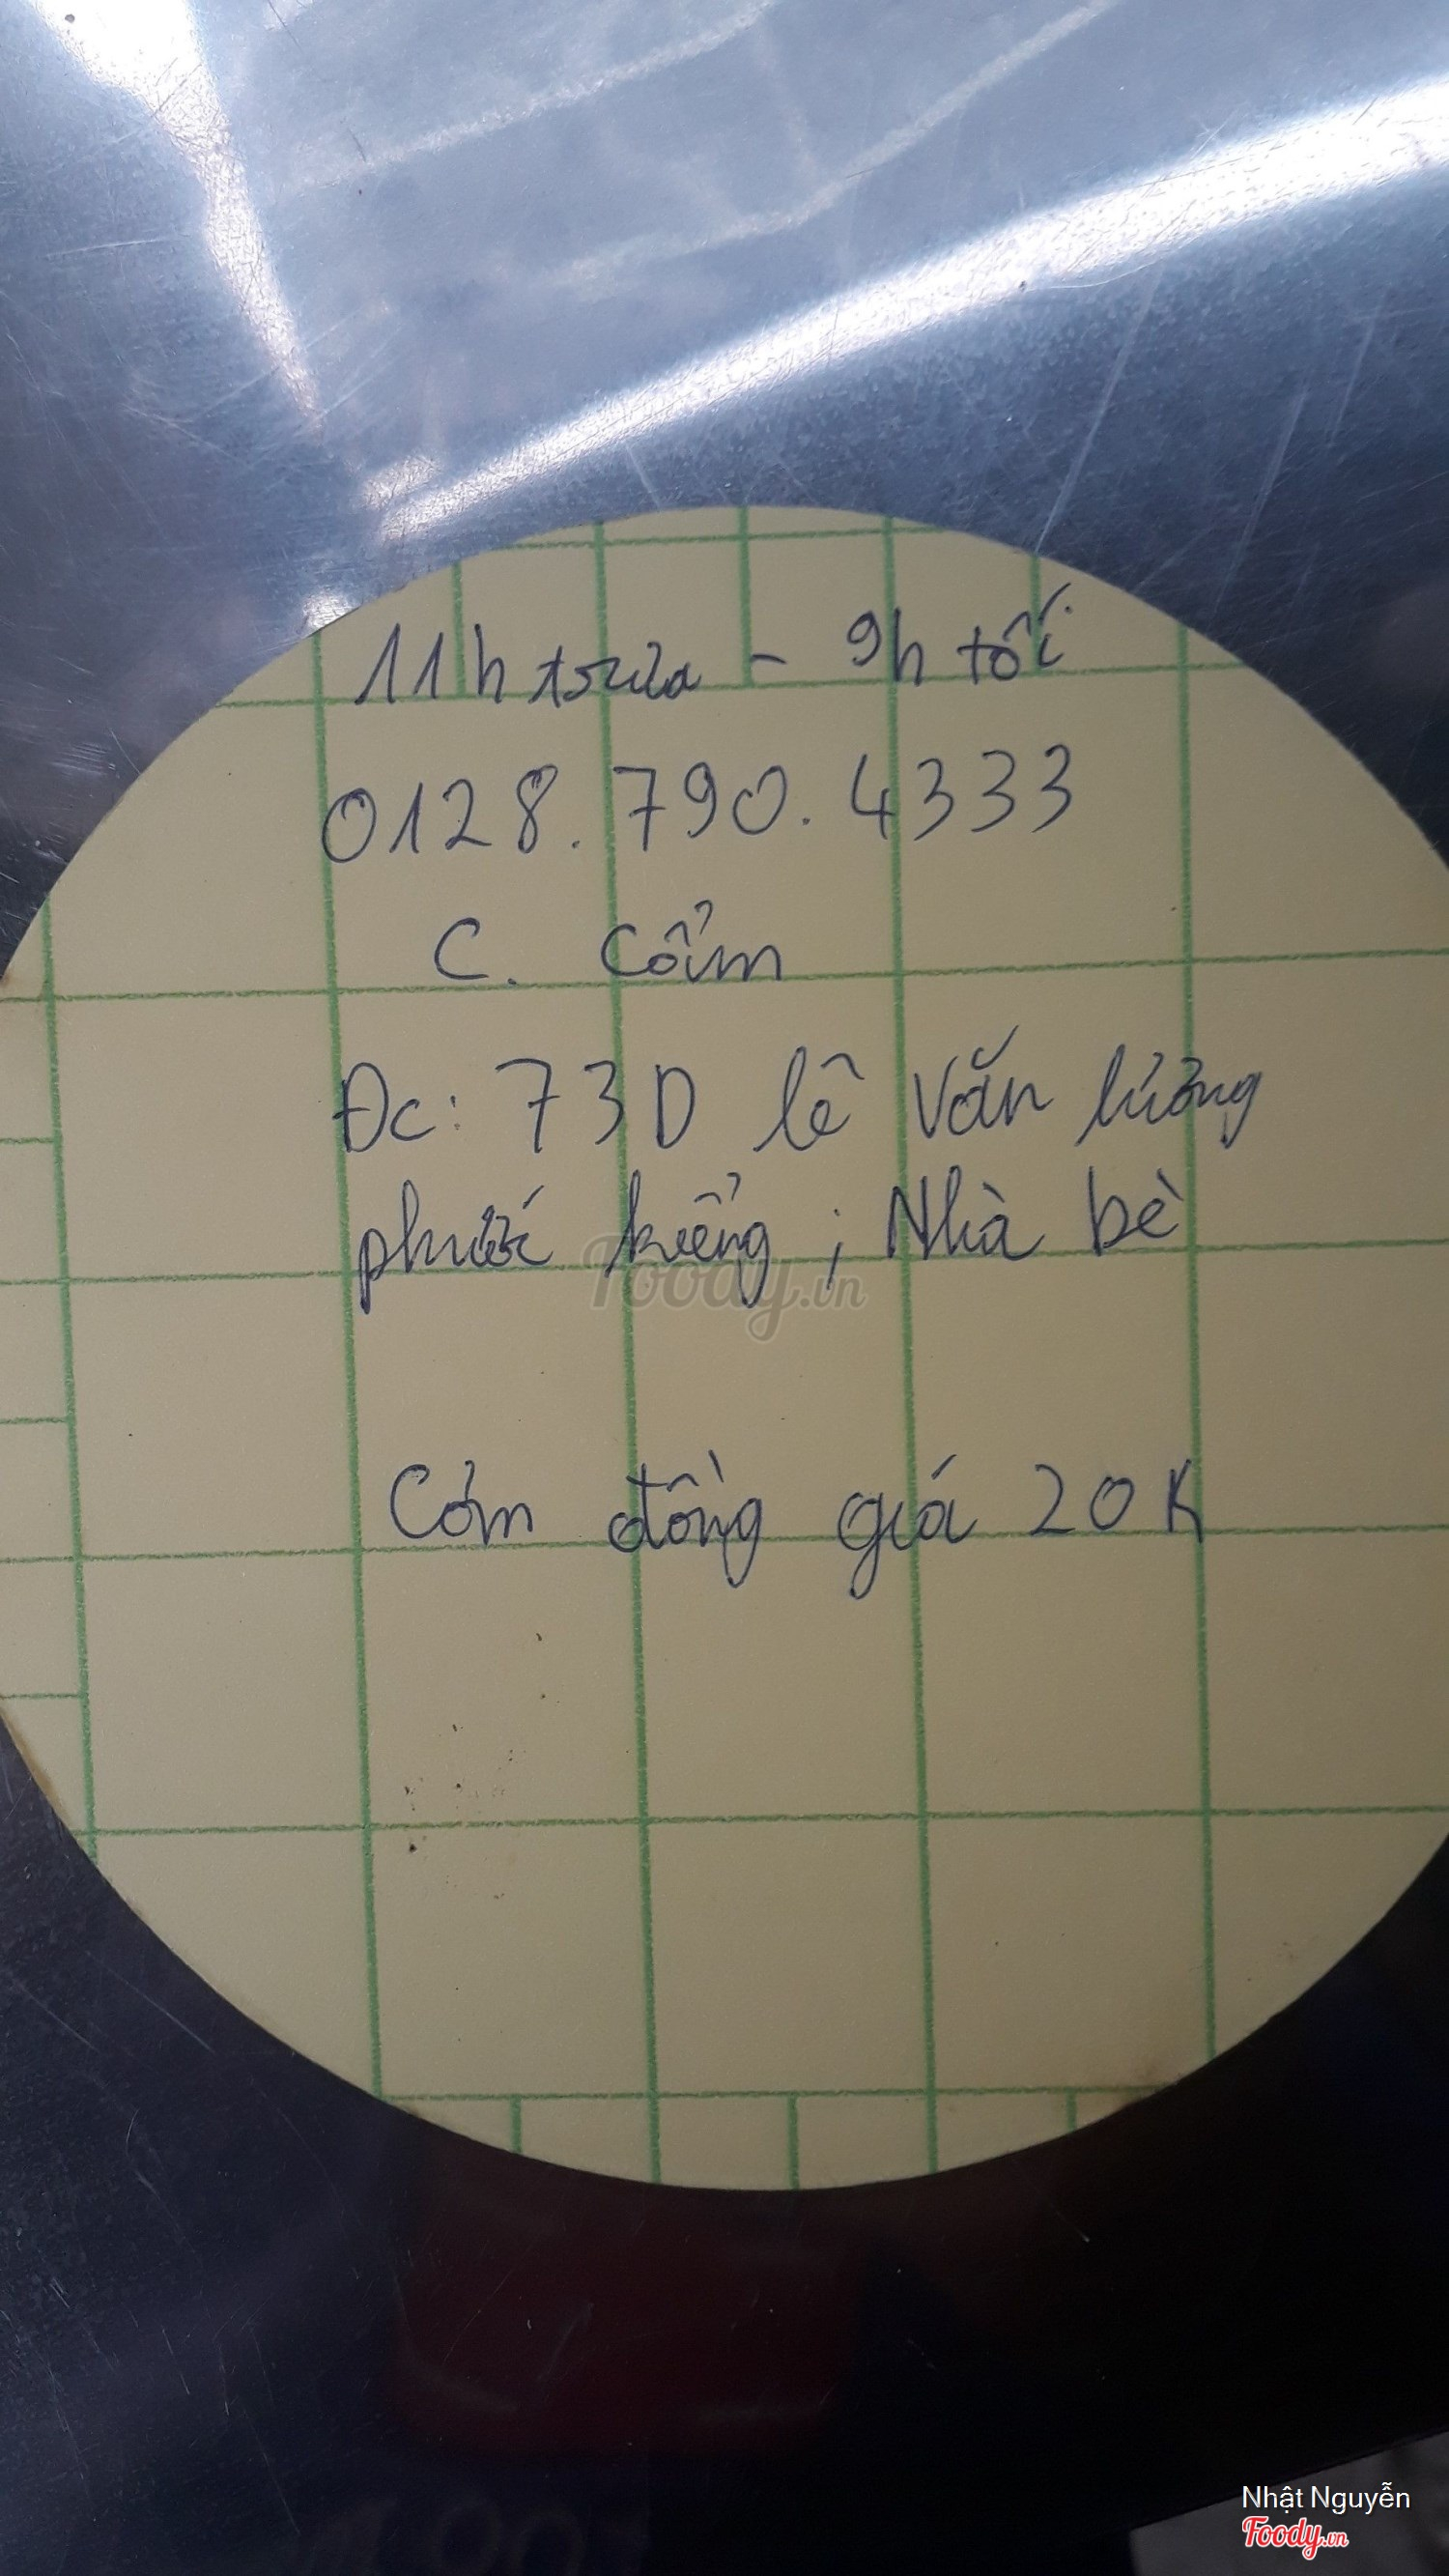 11h trưa - 9h tối
0128.790.4333
C. Cẩm
Đc: 73D lê Văn lương
phước kiểng ; Nhà bè
Foody.vn
Cơm đồng giá 20K
Nhật Nguyễn
Foody.vn